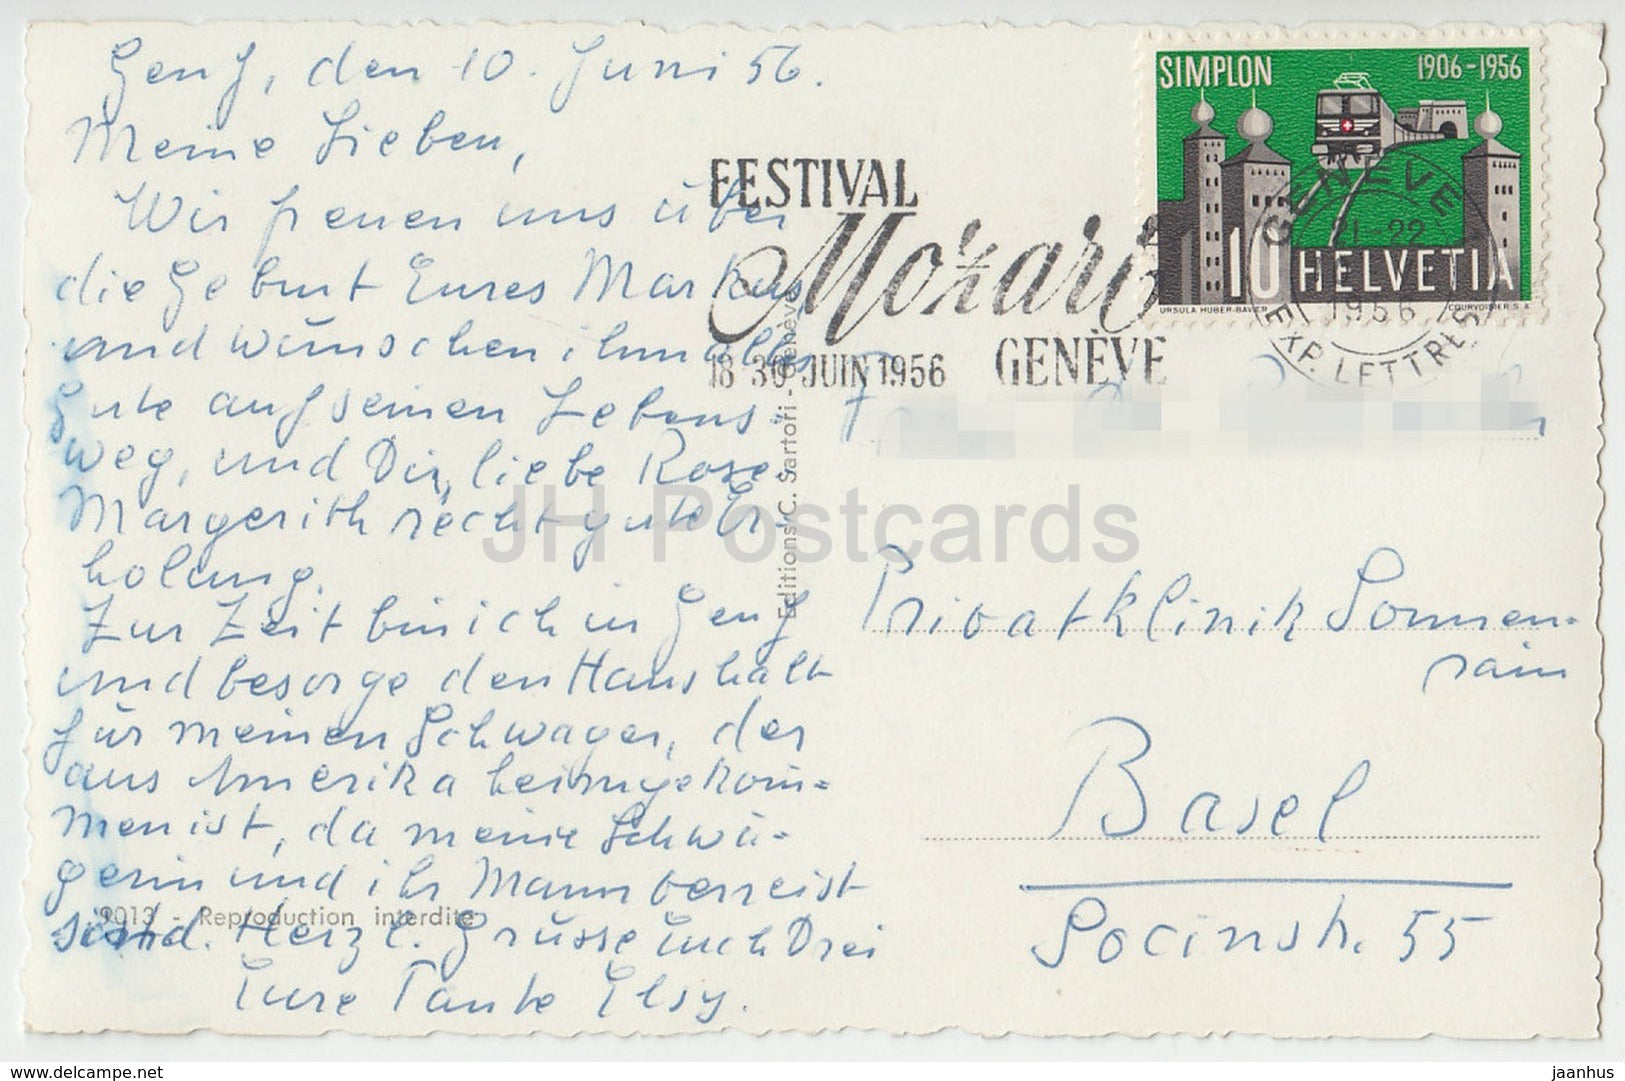 Genf, den 10. Juni 56.
Meine Lieben,
Wir freuen uns über
die Geburt Eures Markus
und wünschen ihm alles
Gute auf seinen Lebens-
weg, und Dir, liebe Rose-
Margerith recht gute Er-
holung.
Zur Zeit bin ich in Genf
und besorge den Haushalt
für meinen Schwager, der
aus Amerika heimgekom=
men ist, da meine Schwä-
gerin und ihr Mann verreist
sind. Herzl. Grüsse Euch Drei
Eure Tante Elsy.
9013 - Reproduction interdite
Editions C. Sartori - Genève
FESTIVAL
Mozart
18 30 JUIN 1956 GENÈVE
SIMPLON 1906-1956
10 HELVETIA
URSULA HUBER-BAVIER COURVOISIER S.A.
GENÈVE
21-22
1956
EXP. LETTRES
Privatklinik Sonnen-
rain
Basel
Socinstr. 55
JH Postcards
delcampe.net
jaanhus